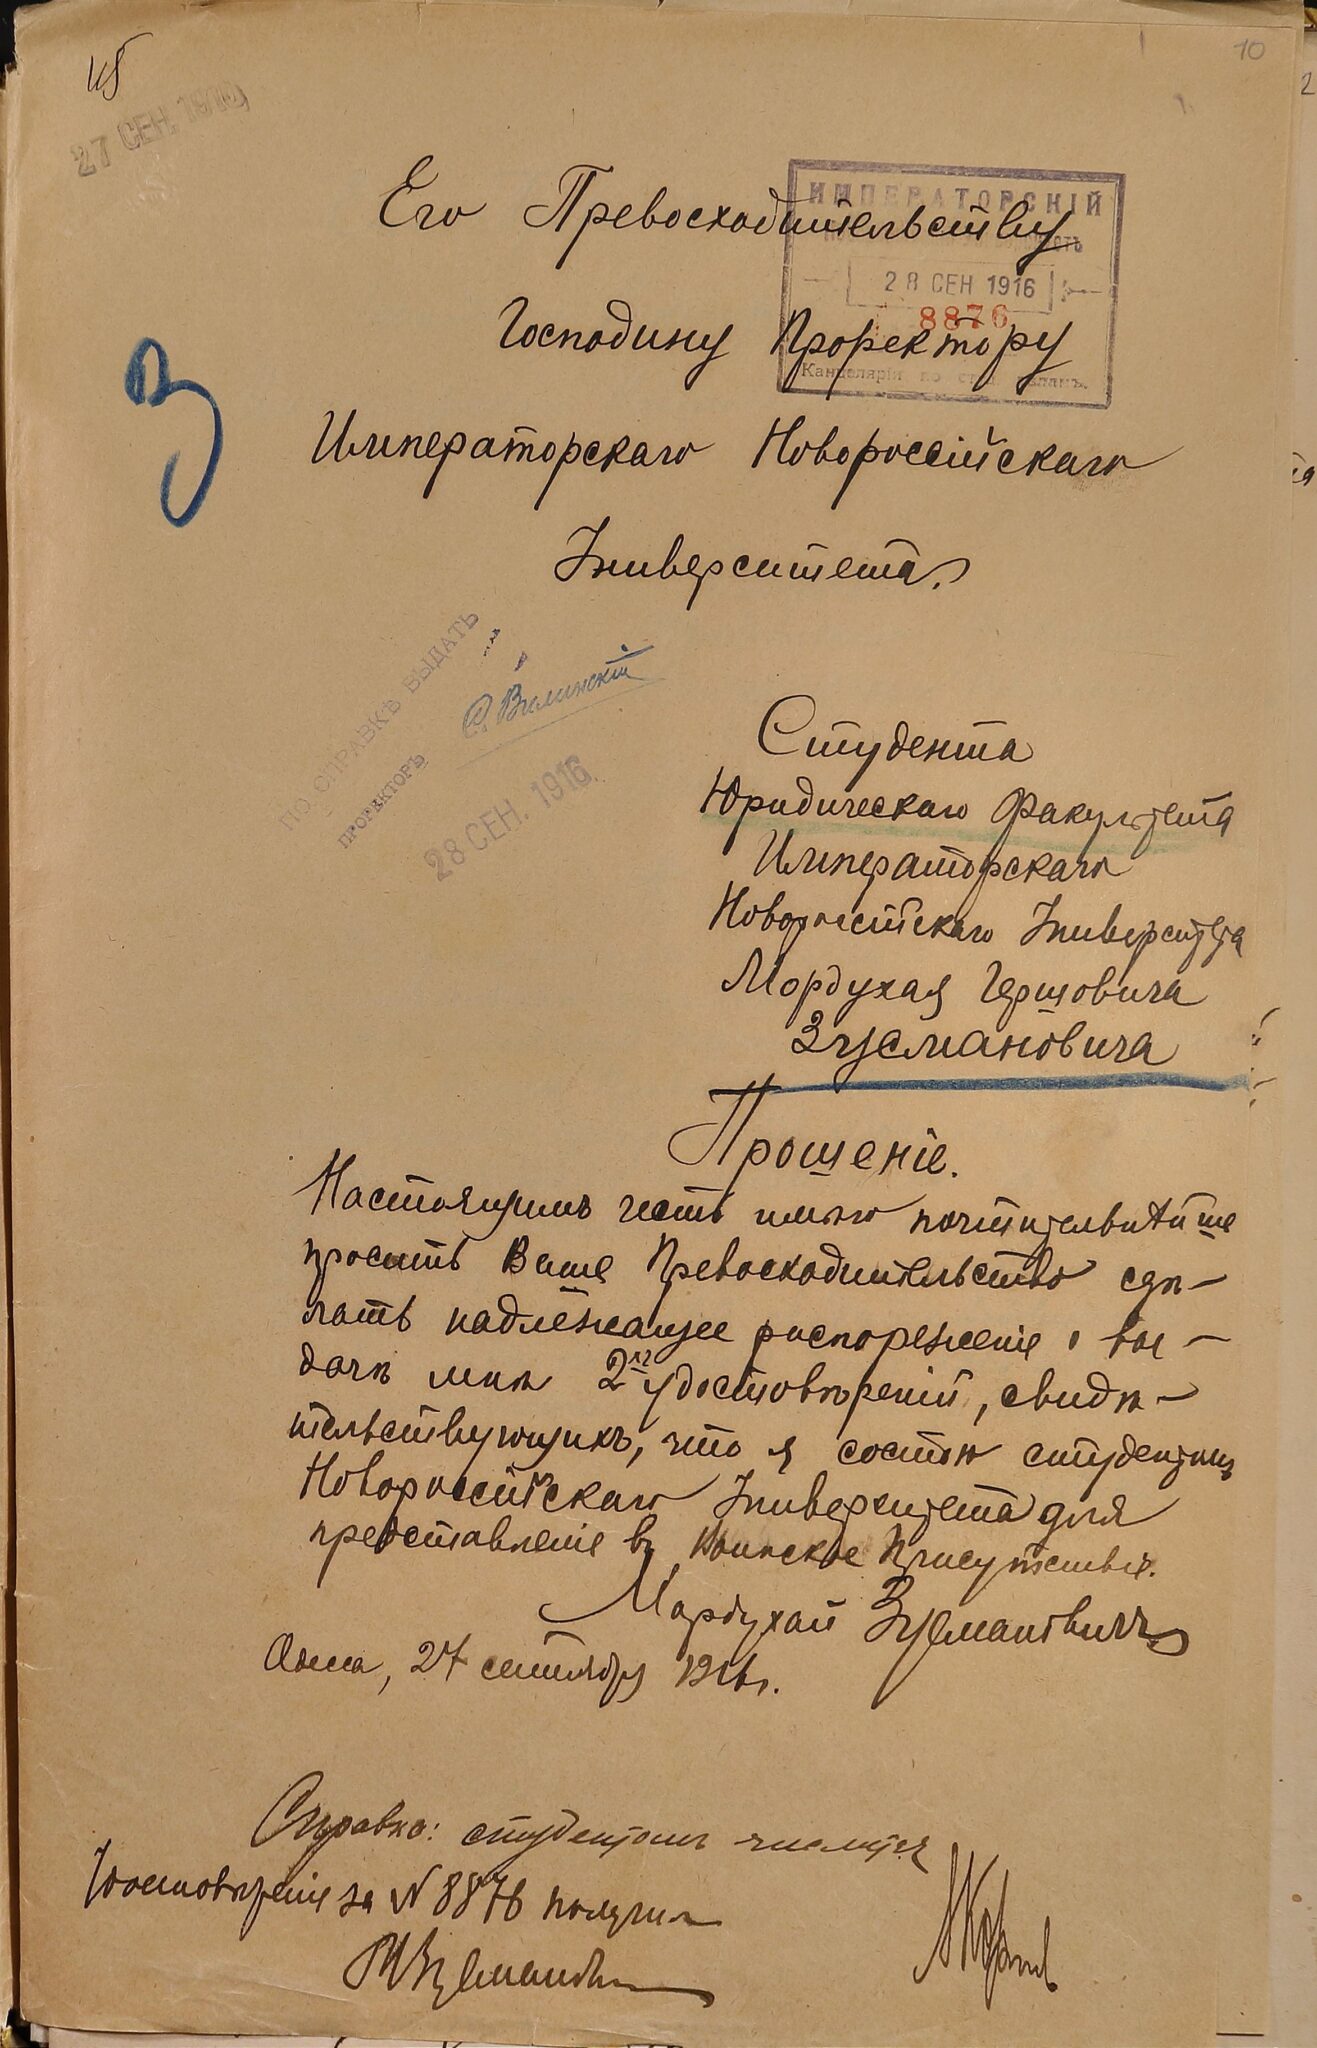 10
27 СЕН. 1916
ИМПЕРАТОРСКІЙ
28 СЕН 1916
8876
Канцелярія по студ. дѣламъ.
Его Превосходительству
Господину Проректору
Императорскаго Новороссійскаго
Университета.
З
ПО СПРАВКѢ ВЫДАТЬ
ПРОРЕКТОРЪ
28 СЕН. 1916.
Студента
Юридическаго Факультета
Императорскаго
Новороссійскаго Университета
Мордухая Гершовича
Зусмановича
Прошеніе.
Настоящимъ честь имѣю почтительнѣйше
просить Ваше Превосходительство сдѣ-
лать надлежащее распореженіе о вы-
дачѣ мнѣ 2хъ удостовѣреній, свидѣ-
тельствующихъ, что я состою студентомъ
Новороссійскаго Университета для
представленіе въ Воинское Присутствіе.
Мордухай Зусмановичъ
Одесса, 27 сентября 1916 г.
Справка: студентомъ числится
Удостовѣреніе за № 8876 получилъ
М Зусмановичъ